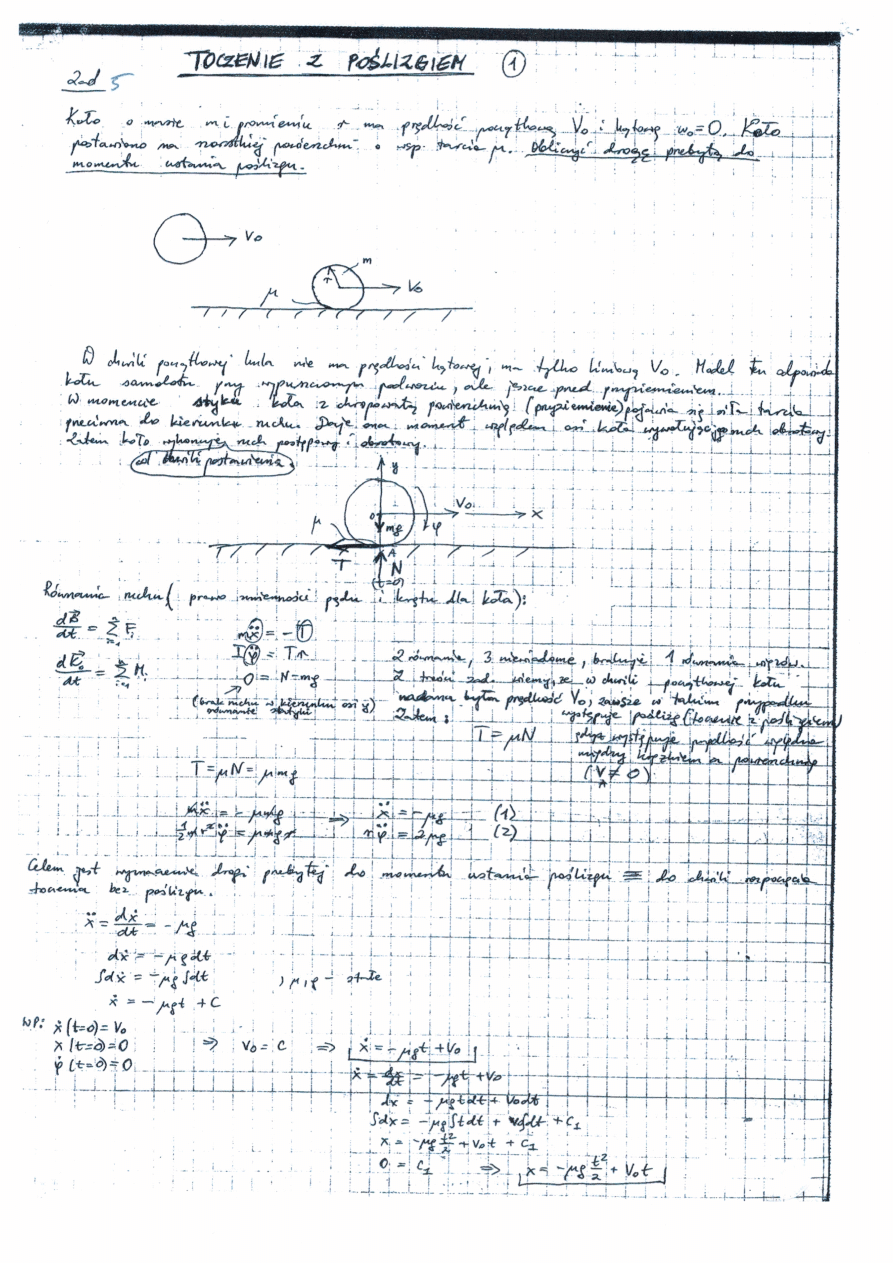 TOCZENIE Z POŚLIZGIEM ①
Zad 5
Koło o masie m i promieniu r ma prędkość początkową V₀ i kątową ω₀=0. Koło
postawiono na szorstkiej powierzchni o wsp. tarcia μ. Obliczyć drogę przebytą do
momentu ustania poślizgu.
V₀
m
r
μ
V₀
W chwili początkowej kula nie ma prędkości kątowej, ma tylko liniową V₀. Model ten odpowiada
kołu samolotu przy wypuszczonym podwoziu, ale jeszcze przed przyziemieniem.
W momencie styku koła z chropowatą powierzchnią (przyziemienie) pojawia się siła tarcia
przeciwna do kierunku ruchu. Daje ona moment względem osi koła wywołujący ruch obrotowy.
Zatem koło wykonuje ruch postępowy i obrotowy.
od chwili postawienia.
y
V₀
x
0
mg
φ
μ
A
T
N
(t=0)
Równania ruchu (prawo zmienności pędu i krętu dla koła):
dB⃗/dt = Σ Fᵢ
dK⃗₀/dt = Σ Mᵢ
mẍ = -T
Iφ̈ = Tr
0 = N-mg
(brak ruchu w kierunku osi y)
równanie statyki
2 równania, 3 niewiadome, brakuje 1 równania więzów.
Z treści zad. wiemy, że w chwili początkowej kołu
nadana była prędkość V₀, zawsze w takim przypadku
występuje poślizg (toczenie z poślizgiem)
Zatem:
T = μN
gdyż występuje prędkość względna
między łącznikiem a powierzchnią
(V_A ≠ 0)
T = μN = μmg
mẍ = -μmg ⇒ ẍ = -μg (1)
½mr²φ̈ = μmgr rφ̈ = 2μg (2)
Celem jest wyznaczenie drogi przebytej do momentu ustania poślizgu ≡ do chwili rozpoczęcia
toczenia bez poślizgu.
ẍ = dẋ/dt = -μg
dẋ = -μgdt
∫dẋ = -μg∫dt , μ, g - stałe
ẋ = -μgt + C
WP: ẋ(t=0) = V₀
x(t=0)=0 ⇒ V₀ = C ⇒ ẋ = -μgt + V₀
φ̇(t=0)=0
ẋ = dx/dt = -μgt + V₀
dx = -μgtdt + V₀dt
∫dx = -μg∫tdt + V₀∫dt + C₁
x = -μg t²/2 + V₀t + C₁
0 = C₁ ⇒ x = -μg t²/2 + V₀t